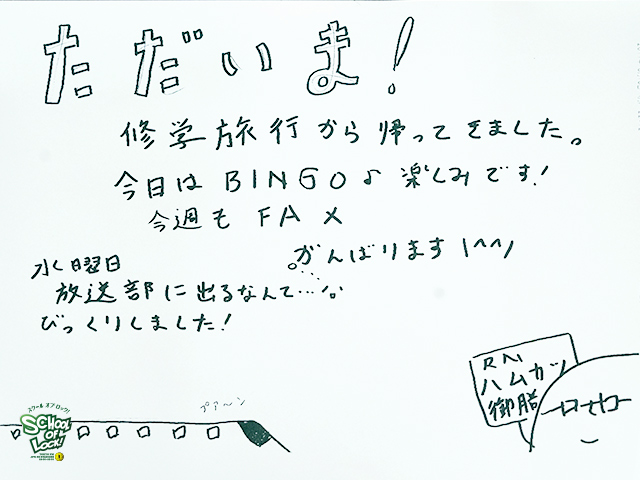 ただいま!
修学旅行から帰ってきました。
今日はBINGO♪楽しみです!
今週もFAX
がんばります!^^/
水曜日
放送部に出るなんて…!
びっくりしました!
RN
ハムカツ
御膳
プアーン
スクール オブ ロック!
SCHOOL
OF
LOCK!